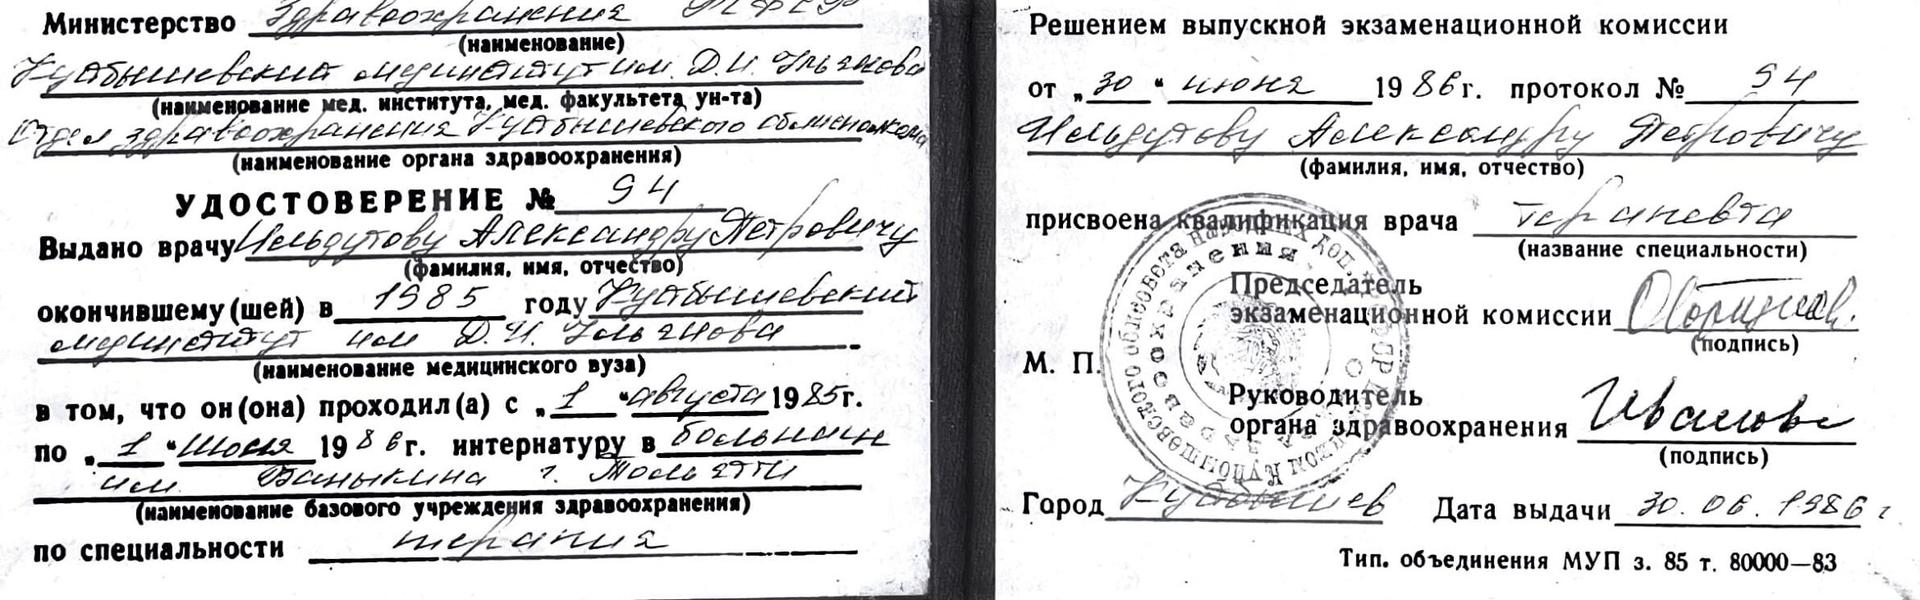 Министерство Здравоохранения РСФСР
(наименование)
Куйбышевский мединститут им. Д.И. Ульянова
(наименование мед. института, мед. факультета ун-та)
Отдел здравоохранения Куйбышевского облисполкома
(наименование органа здравоохранения)
УДОСТОВЕРЕНИЕ № 94
Выдано врачу Ильдутову Александру Петровичу
(фамилия, имя, отчество)
окончившему(шей) в 1985 году Куйбышевский
мединститут им Д.И. Ульянова
(наименование медицинского вуза)
в том, что он(она) проходил(а) с „1 “ августа 1985г.
по „1 “ июля 1986г. интернатуру в больнице
им. Баныкина г. Тольятти
(наименование базового учреждения здравоохранения)
по специальности терапия
Решением выпускной экзаменационной комиссии
от „30 “ июня 1986г. протокол № 94
Ильдутову Александру Петровичу
(фамилия, имя, отчество)
присвоена квалификация врача терапевта
(название специальности)
Председатель
экзаменационной комиссии
(подпись)
М. П.
Руководитель
органа здравоохранения Иванова
(подпись)
Город Куйбышев Дата выдачи 30.06.1986 г
Тип. объединения МУП з. 85 т. 80000—83